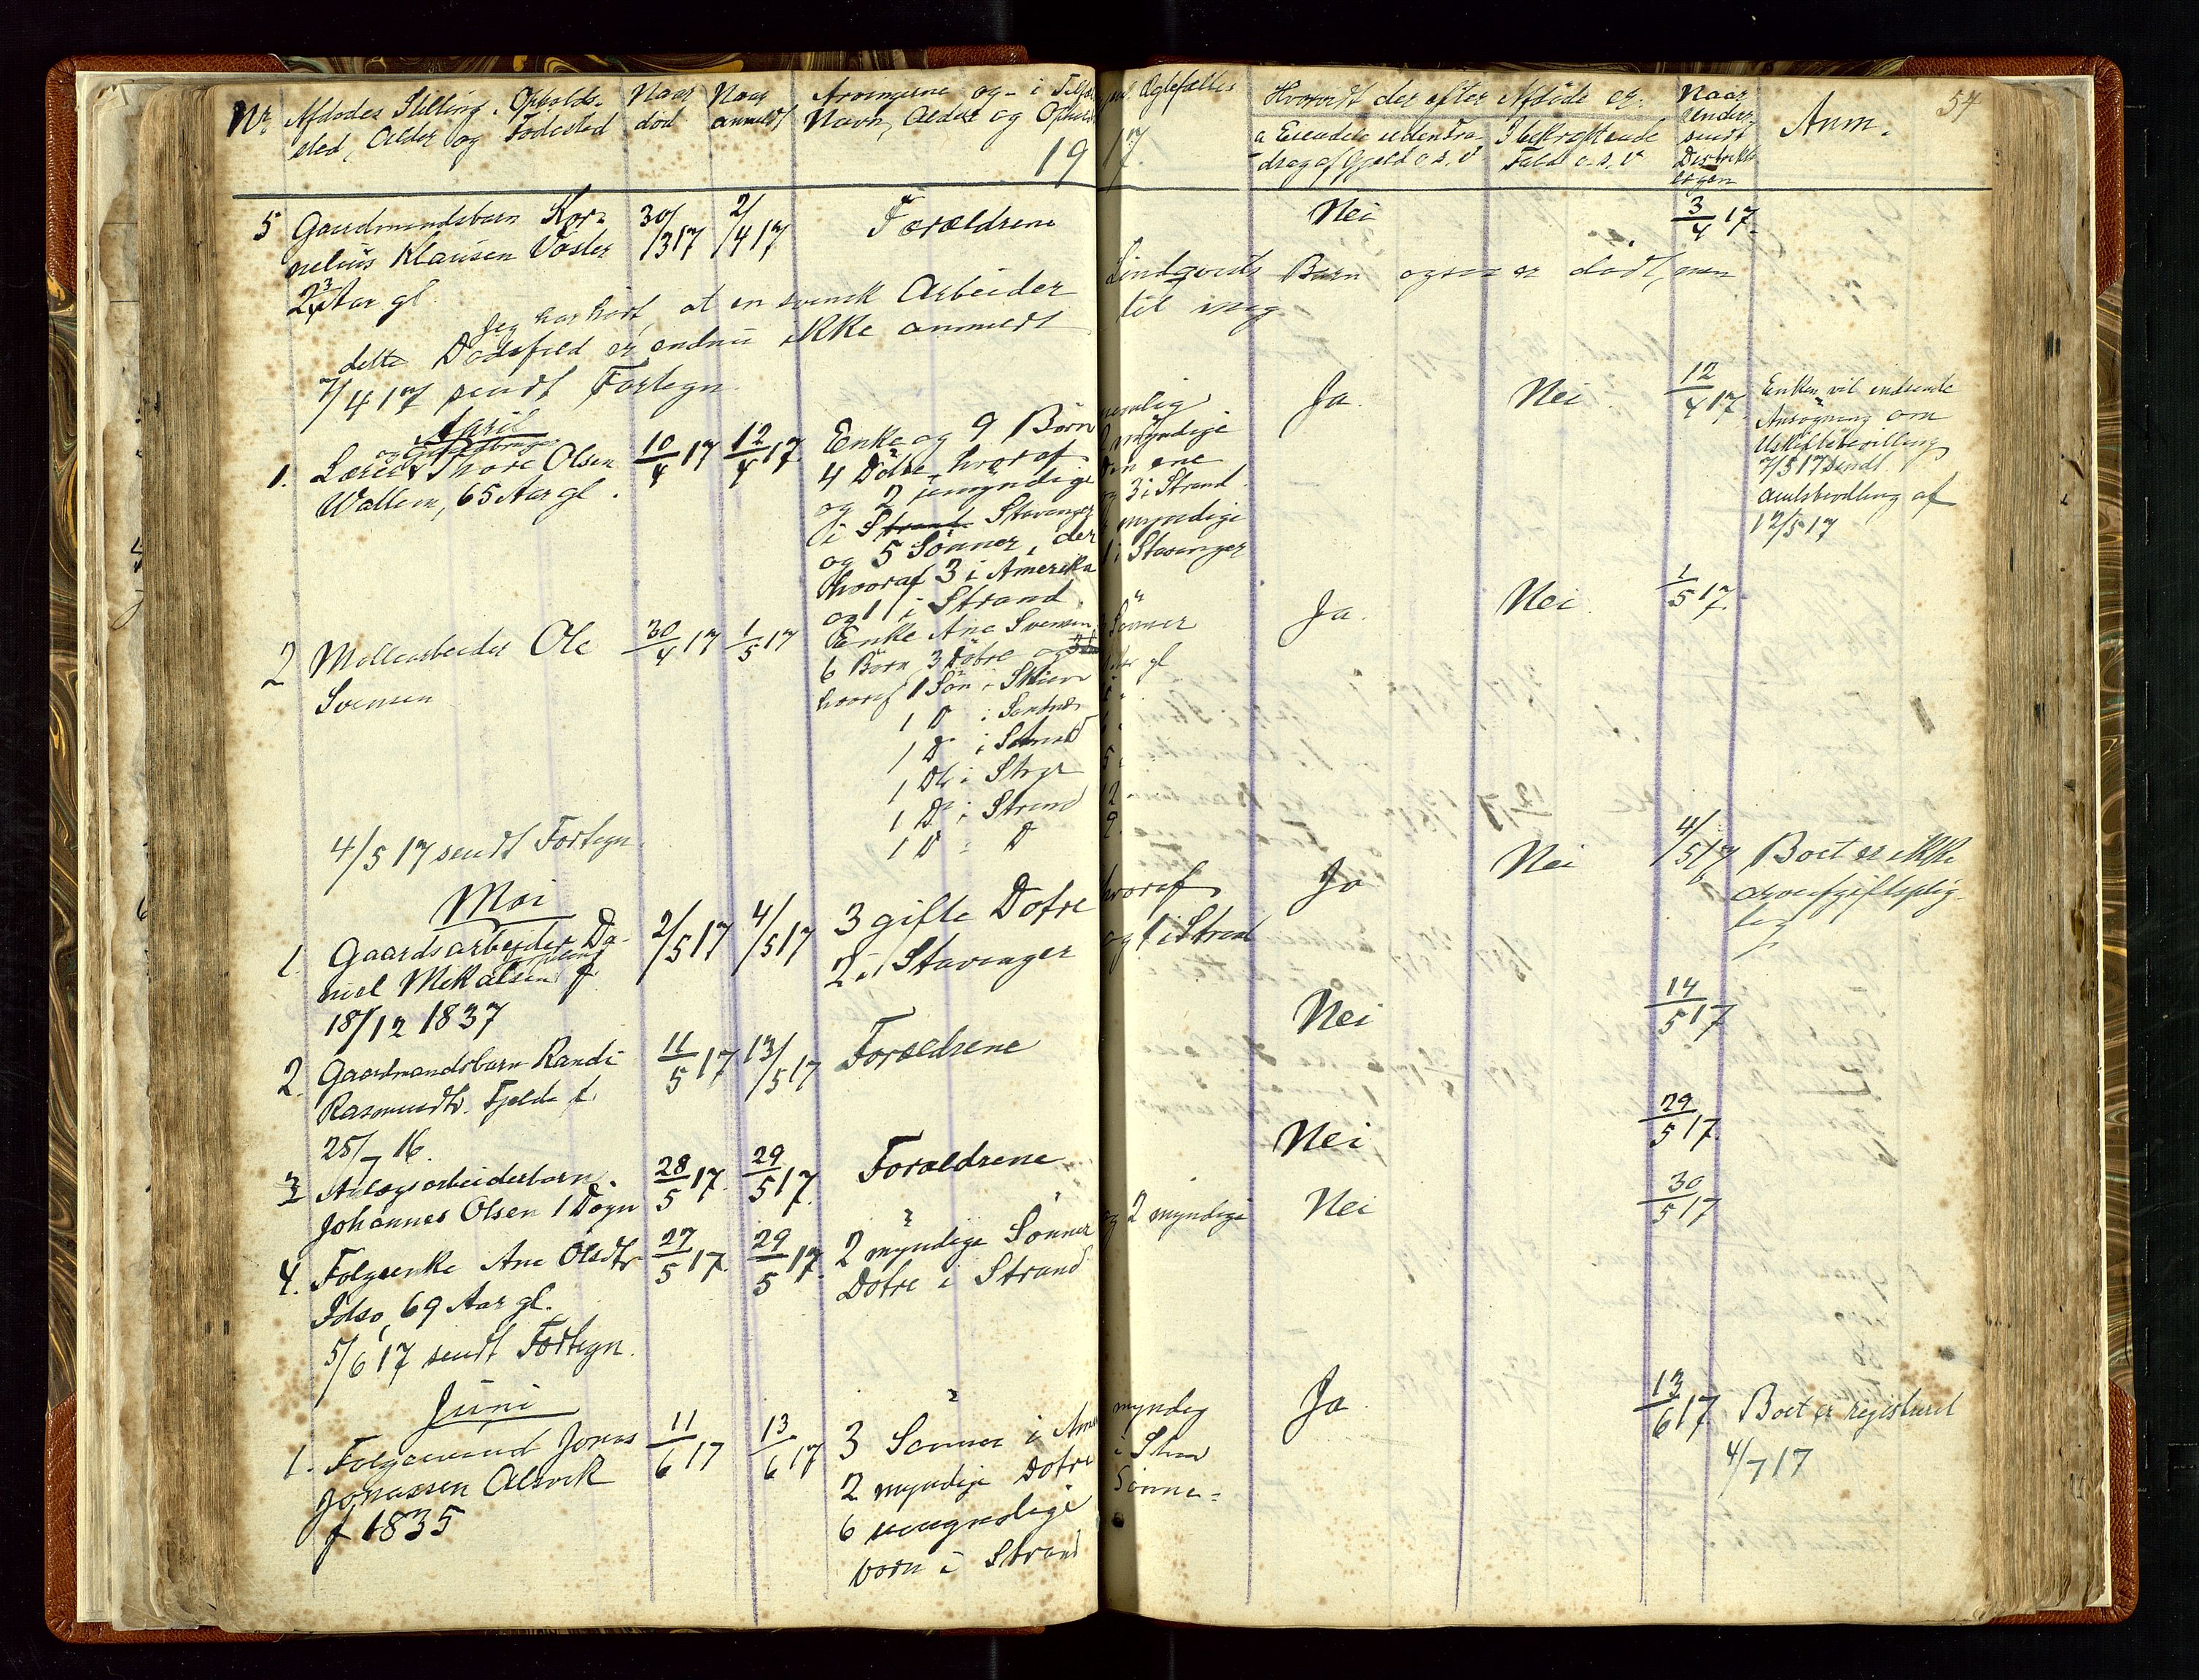 54
Nr. Afdødes Stilling, Opholds- Naar Naar Arvingerne og i Tilfælde Ægtefælles Hvorvidt der efter Afdøde er. Naar
sted, Alder og Fødested død anmeldt Navn, Alder og Opholds a Eiendele uden Fra- I bekræftende Anm.
drag af Gjæld o.s.v Fald o.s.v
1917.
5 Gaardmandsbarn Kor- 30/317 2/417 Forældrene Nei 3/4 17.
nelius Klausen Vaster
2 3/4 Aar gl
Jeg har hørt, at en svensk Arbeider Lindqvists Barn ogsaa er dødt, men
dette Dødsfald er endnu ikke anmeldt til mig
7/417 sendt Fortegn.
April
og Gaardbruger
1. Lærer Thore Olsen 10/4 17 12/4 17 Enke og 9 Børn nemlig Ja. Nei. 12/4 17 Enken vil indsende
Wallem, 65 Aar gl. 4 Døtre, hvoraf 2 myndige Ansøgning om
og 2 umyndige den ene Uskiftebevilling
i Strand Stavanger og 3 i Strand 7/517 sendt
og 5 Sønner, der myndige amtsbevilling af
hvoraf 3 i Amerika 1 i Stavanger 12/517
og 1 i Strand
2 Møllearbeider Ole 30/4 17 1/5 17 Enke Ane Svensen Ja. Nei. 1/5 17.
Svensen 6 Børn 3 Døtre og 3 Sønner
hvoraf 1 Søn i Skien Aar gl
1 D i Sandnes
1 D i Strand
1 Dt i Strand
1 D i Strand 12
1 D D 9.
4/517 sendt Fortegn.
Mai
1. Gaardsarbeider Da- 2/517 4/517 3 gifte Døtre hvoraf Ja Nei 4/517 Boet er ikke
niel Mikalsen f. 2 i Stavanger og 1 i Strand arveafgiftsplig-
18/12 1837 tig
2. Gaardmandsbarn Randi 11/5 17 13/517 Forældrene Nei 14/5 17
Rasmusdtr. Fjelde f.
25/7 16.
3 Anlægsarbeiderbarn 28/5 17. 29/5 17. Forældrene Nei 29/5 17.
Johannes Olsen 1 Døgn
4. Folgeenke Ane Olsdtr 27/5 17. 29/5 17. 2 myndige Sønner og 2 myndige Nei 30/5 17
Idsø, 69 Aar gl. Døtre i Strand
5/617 sendt Fortegn.
Juni
1. Folgemand Jonas 11/6 17 13/6 17 3 Sønner i Ame myndig Ja. 13/6 17 Boet er registreret
Jonassen Alsvik 2 myndige Døtre i Strand 4/717
f 1835 6 umyndige Sønne-
børn i Strand